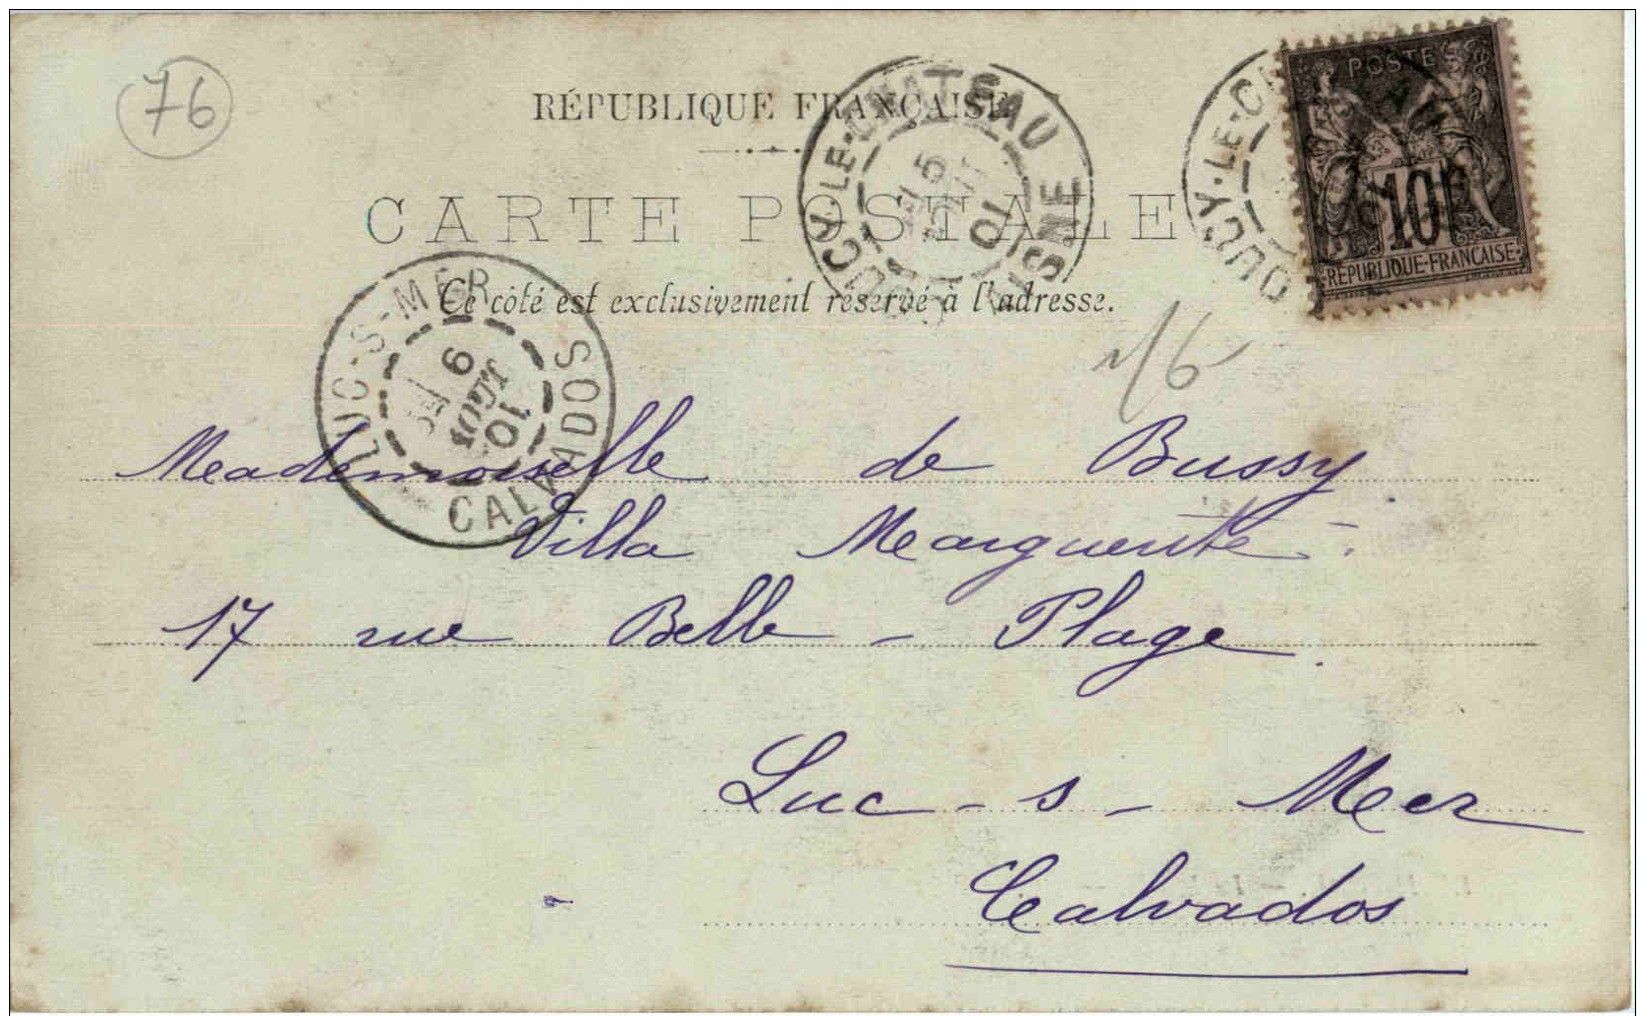 76
RÉPUBLIQUE FRANÇAISE
CARTE POSTALE
Ce côté est exclusivement réservé à l'adresse.
POSTES
10
RÉPUBLIQUE FRANÇAISE
OUCY-LE-CHATEAU
AISNE
5
AOUT
01
OUCY-LE-CH
LUC-S-MER
9
AOUT
01
CALVADOS
Mademoiselle de Bussy
Villa Marguerite
17 rue Belle - Plage
Luc - s - Mer
Calvados